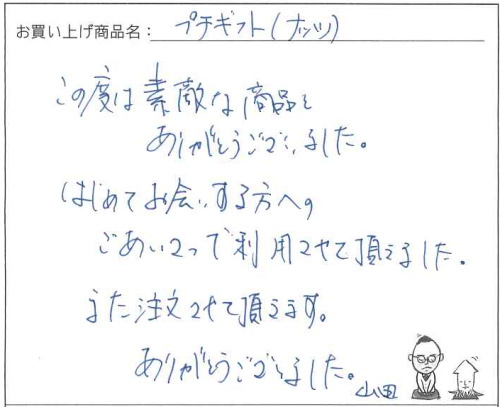 お買い上げ商品名: プチギフト(ナッツ)
この度は素敵な商品を
ありがとうございました。
はじめてお会いする方への
ごあいさつで利用させて頂きました。
また注文させて頂きます。
ありがとうございました。
山田